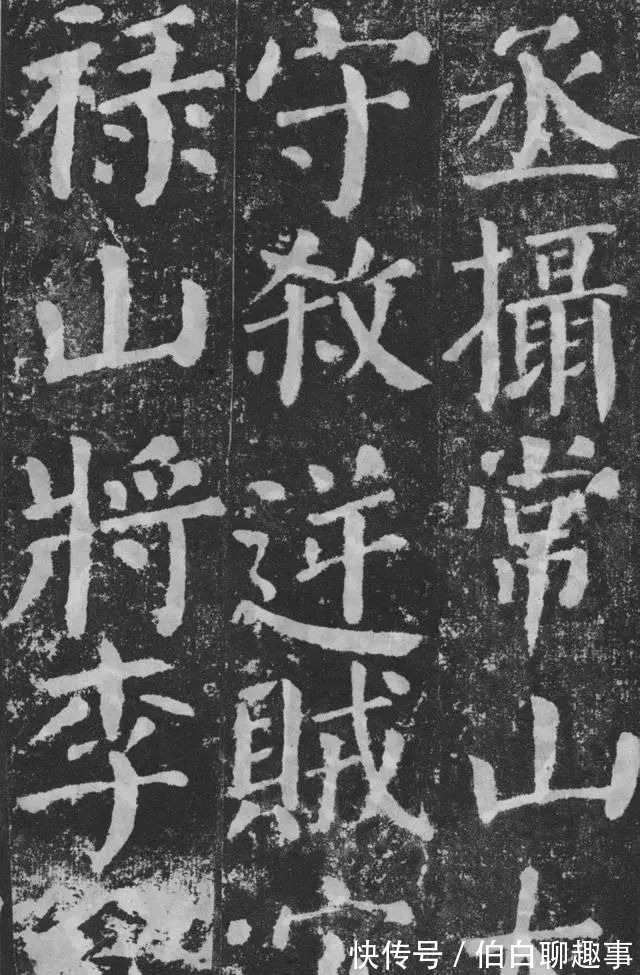 丞攝常山
守殺逆賊
禄山將李
快传号 / 伯白聊趣事